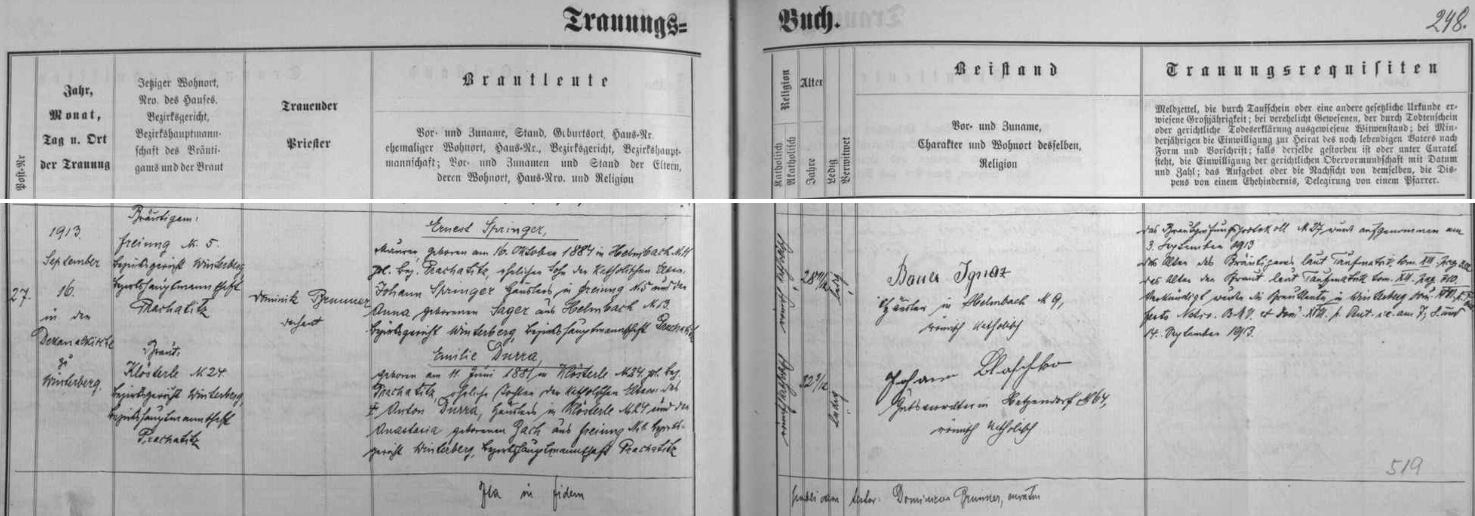 Trauungs=
Buch.
248.
Post-Nr
Jahr,
Monat,
Tag u. Ort
der Trauung
Jetziger Wohnort,
Nro. des Hauses,
Bezirksgericht,
Bezirkshauptmann-
schaft des Bräuti-
gams und der Braut
Trauender
Priester
Brautleute
Vor- und Zuname, Stand, Geburtsort, Haus-Nr.
ehemaliger Wohnort, Haus-Nr., Bezirksgericht, Bezirkshaupt-
mannschaft; Vor- und Zunamen und Stand der Eltern,
deren Wohnort, Haus-Nro. und Religion
Religion
Katholisch
Akatholisch
Alter
Jahre
Ledig
Verwitwet
Beistand
Vor- und Zuname,
Charakter und Wohnort desselben,
Religion
Trauungsrequisiten
Meldzettel, die durch Taufschein oder eine andere gesetzliche Urkunde er-
wiesene Großjährigkeit; bei verehelicht Gewesenen, der durch Todtenschein
oder gerichtliche Todeserklärung ausgewiesene Witwenstand; bei Min-
derjährigen die Einwilligung zur Heirat des noch lebendigen Vaters nach
Form und Vorschrift; falls derselbe gestorben ist oder unter Curatel
steht, die Einwilligung der gerichtlichen Obervormundschaft mit Datum
und Zahl; das Aufgebot oder die Nachsicht von demselben, die Dis-
pens von einem Ehehindernis, Delegirung von einem Pfarrer.
27.
1913.
September
16.
in der
Dekanalkirche
zu
Winterberg.
Bräutigam:
Freiung N. 5.
Bezirksgericht Winterberg
Bezirkshauptmannschaft
Prachatitz
Braut:
Klösterle N 24
Bezirksgericht Winterberg,
Bezirkshauptmannschaft
Prachatitz
Dominik Brunner
Dechant
Ernest Springer,
Maurer, geboren am 16. Oktober 1884 in Helmbach N.
pol. Bez. Prachatitz, ehelicher Sohn der katholischen Eltern:
Johann Springer Häuslers in Freiung N 5 und der
Anna geborenen Sager aus Helmbach N 13.
Bezirksgericht Winterberg, Bezirkshauptmannschaft Prachatitz
Emilie Durra,
geboren am 11. Juni 1881 in Klösterle N 24. pol. Bez.
Prachatitz, eheliche Tochter der katholischen Eltern: des
† Anton Durra, Häuslers in Klösterle N 24 und der
Anastasia geborenen Gach aus Freiung N Bezirks-
gericht Winterberg, Bezirkshauptmannschaft Prachatitz
Ita in fidem
römisch katholisch
28
ledig
römisch katholisch
32
ledig
Bauer Ignaz
Häusler in Helmbach N 9,
römisch katholisch
Johann Blaschko
in N 64,
römisch katholisch
Das Brautprüfungsprotokoll N 27 wurde aufgenommen am
3. September 1913
Das Alter des Bräutigams laut Taufmatrik tom. XII. pag.
Das Alter der Braut laut Taufmatrik tom. XII. pag.
Verkündigt wurden die Brautleute in Winterberg
14. September 1913.
519
Dominicus Brunner,